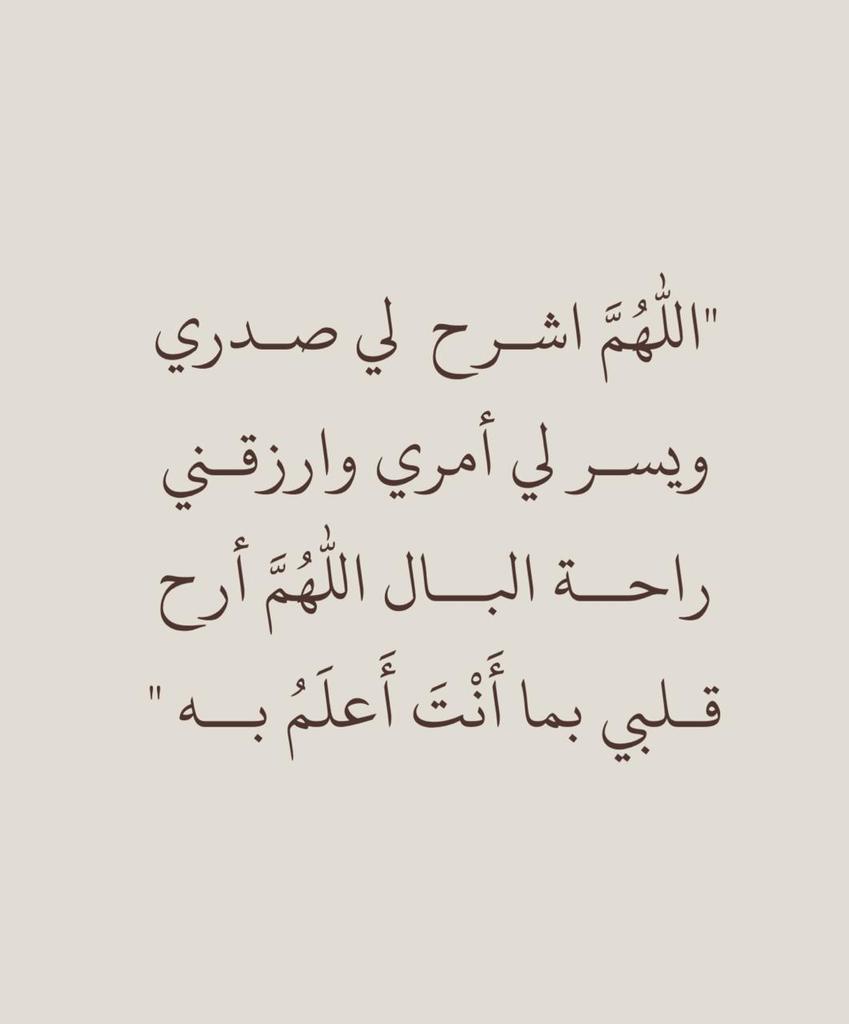 "اللّٰهُمَّ اشـــرح لي صـــدري
ويســـر لي أمري وارزقـــني
راحـــة البـــال اللّٰهُمَّ أرح
قـــلبي بما أَنْتَ أَعلَمُ بـــه "